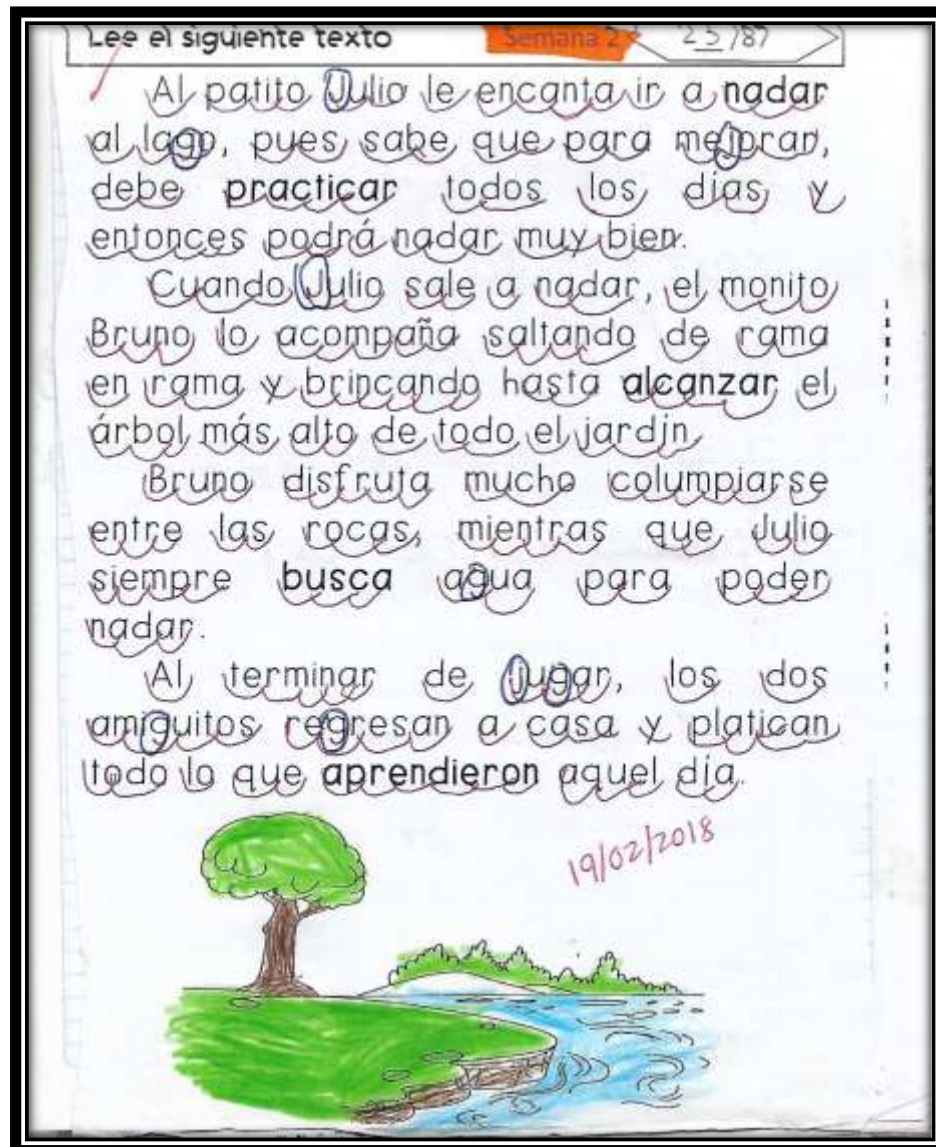 Lee el siguiente texto Semana 2 25/87
Al patito Julio le encanta ir a nadar
al lago, pues sabe que para mejorar,
debe practicar todos los días y
entonces podrá nadar muy bien.
Cuando Julio sale a nadar, el monito
Bruno lo acompaña saltando de rama
en rama y brincando hasta alcanzar el
árbol más alto de todo el jardín.
Bruno disfruta mucho columpiarse
entre las rocas, mientras que Julio
siempre busca agua para poder
nadar.
Al terminar de jugar, los dos
amiguitos regresan a casa y platican
todo lo que aprendieron aquel día.
19/02/2018